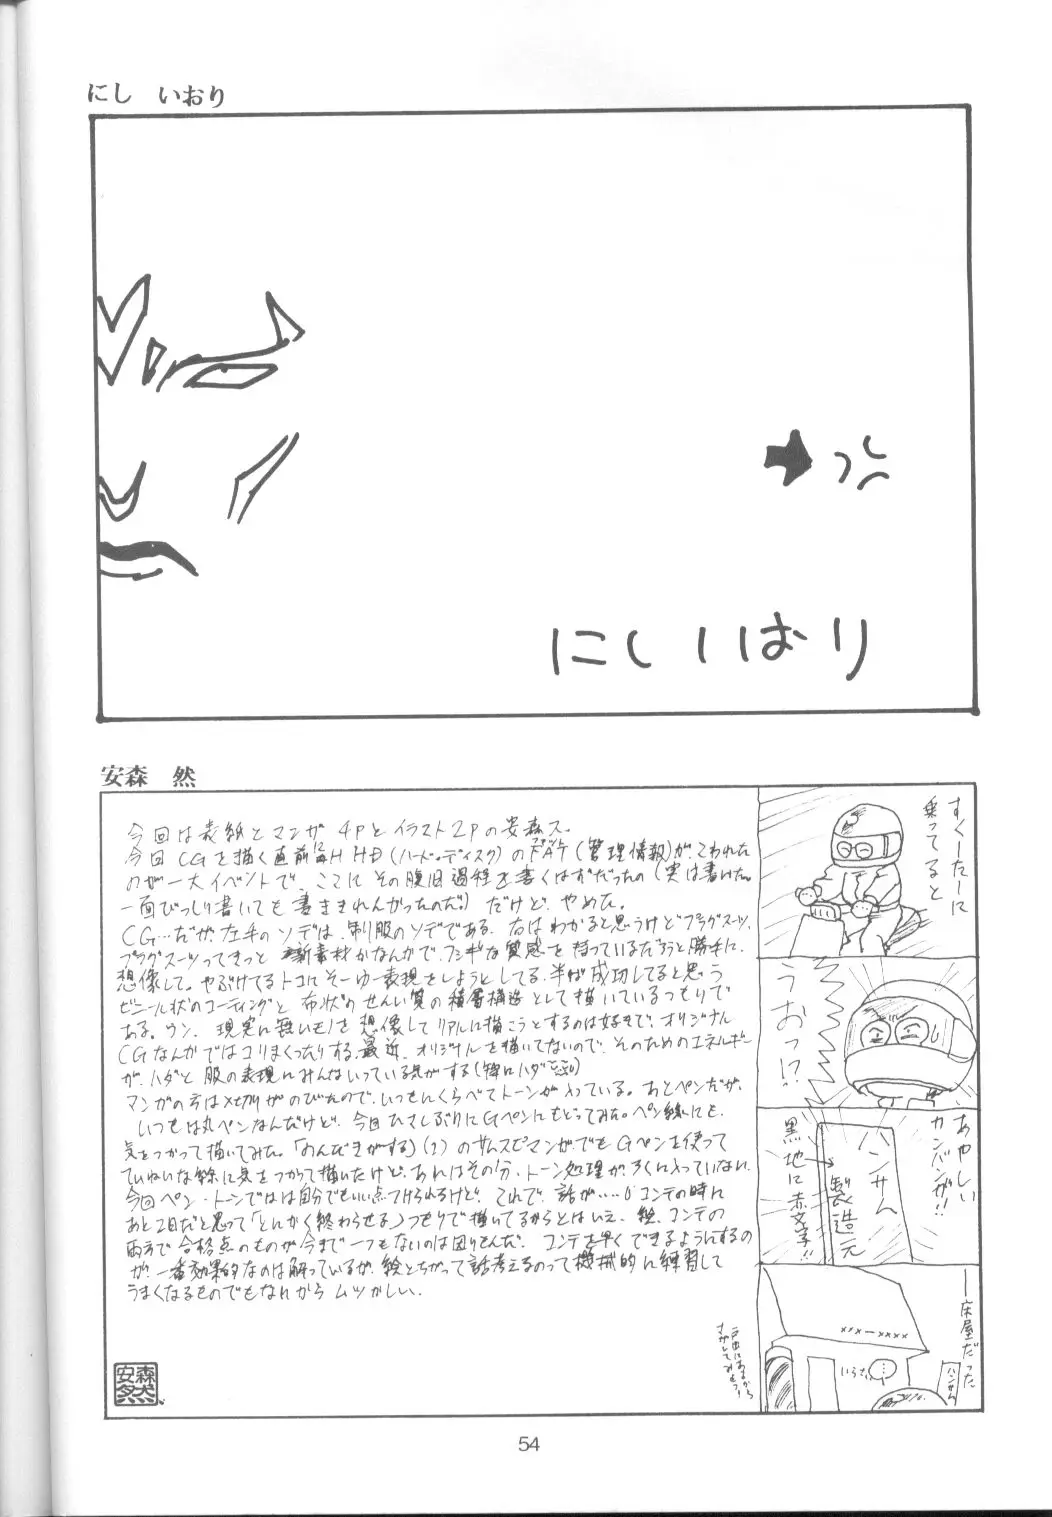 にし　いおり
にしいおり
安森　然
今回は表紙とマンガ4Pとイラスト2Pの安森ス。
今回CGを描く直前にH HD(ハード・ディスク)のFAT(管理情報)がこわれた
のが一大イベントで、ここにその復旧過程を書くはずだったの(実は書けた。
一面びっしり書いても書ききれんかったのだ。)だけど、やめた。
CG…だが、左手のソデは、制服のソデである。右はわかると思うけどプラグスーツ。
プラグスーツってきっと新素材かなんかで、フシギな質感を持っているだろうと勝手に
想像して。やぶけてるトコにそーゆー表現をしようとしてる。半ば成功してると思う
ビニール状のコーティングと布状のせんい質の積層構造として描いているつもりで
ある。ウン、現実に無いモノを想像してリアルに描こうとするのは好きで、オリジナル
CGなんかではコリまくったりする。最近、オリジナルを描いてないので、そのためのエネルギー
が、ハダと服の表現にみんないっている気がする(特にハダ)
マンガの方は〆切りがのびたので、いつもにくらべてトーンが入っている。あとペンだが、
いつもは丸ペンなんだけど、今回ひさしぶりにGペンにもどってみた。ペン線にも、
気をつかって描いてみた。「のんだきがする」(?)のサムスピマンガでもGペンを使って
ていねいな線に気をつかって描いたけど、あれはその分、トーン処理がろくに入っていない。
今回ペン・トーンでは自分でもいい点つけられるけど、これで、話が……。コンテの時に
あと2日だと思って「とにかく終わらせる」つもりで描いてるからとはいえ、絵、コンテの
両方で合格点のものが今まで一つもないのは困りもんだ。コンテを早くできるようにするの
が、一番効果的なのは解っているが、絵とちがって話考えるのって機械的に練習して
うまくなるものでもないから ムツかしい。
安森然
すくーたーに
乗ってると
うおっ!?
あやしい
カンバンが!!
ハンサム
製造元
黒地に赤文字!!
―床屋だった
×××-××××
いらさい
ハンサム
54